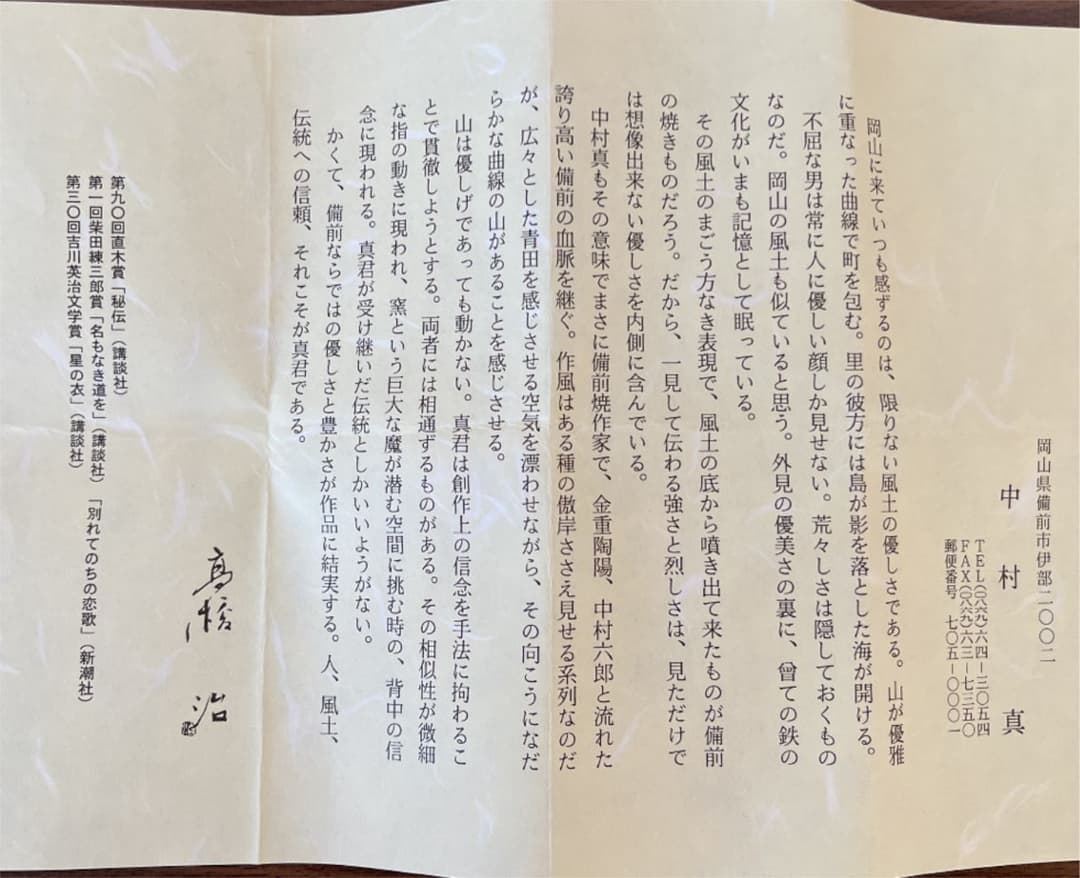 岡山県備前市伊部二〇〇二
中村 真
TEL(〇八六九)六四―三〇五四
FAX(〇八六九)六三―七三五〇
郵便番号 七〇五―〇〇〇一
岡山に来ていつも感ずるのは、限りない風土の優しさである。山が優雅
に重なった曲線で町を包む。里の彼方には島が影を落とした海が開ける。
不屈な男は常に人に優しい顔しか見せない。荒々しさは隠しておくもの
なのだ。岡山の風土も似ていると思う。外見の優美さの裏に、曾ての鉄の
文化がいまも記憶として眠っている。
その風土のまごう方なき表現で、風土の底から噴き出て来たものが備前
の焼きものだろう。だから、一見して伝わる強さと烈しさは、見ただけで
は想像出来ない優しさを内側に含んでいる。
中村真もその意味でまさに備前焼作家で、金重陶陽、中村六郎と流れた
誇り高い備前の血脈を継ぐ。作風はある種の傲岸ささえ見せる系列なのだ
が、広々とした青田を感じさせる空気を漂わせながら、その向こうになだ
らかな曲線の山があることを感じさせる。
山は優しげであっても動かない。真君は創作上の信念を手法に拘わるこ
とで貫徹しようとする。両者には相通ずるものがある。その相似性が微細
な指の動きに現われ、窯という巨大な魔が潜む空間に挑む時の、背中の信
念に現われる。真君が受け継いだ伝統としかいいようがない。
かくて、備前ならではの優しさと豊かさが作品に結実する。人、風土、
伝統への信頼、それこそが真君である。
高橋 治
第九〇回直木賞「秘伝」(講談社)
第一回柴田練三郎賞「名もなき道を」(講談社)「別れてのちの恋歌」(新潮社)
第三〇回吉川英治文学賞「星の衣」(講談社)